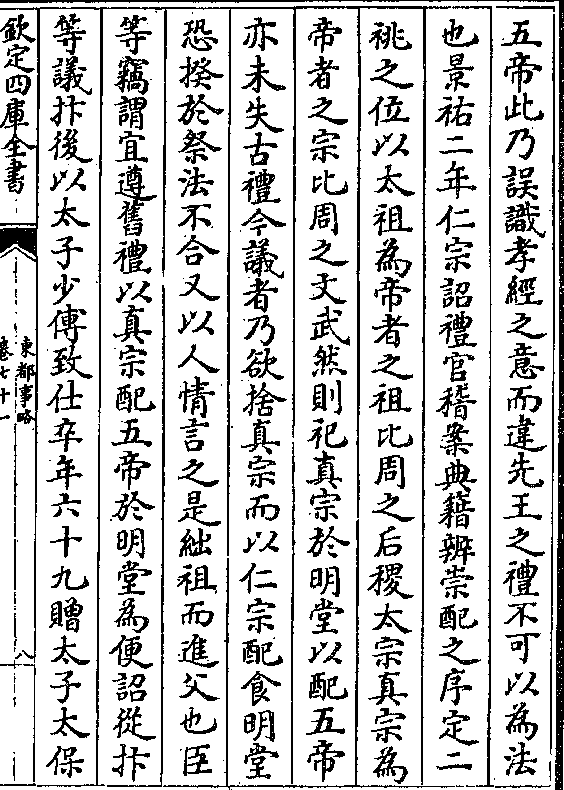 五帝此乃誤識孝經之意而違先王之禮不可以為法
也景祐二年仁宗詔禮官稽案典籍辨崇配之序定二
祧之位以太祖為帝者之祖比周之后稷太宗真宗為
帝者之宗比周之文武然則祀真宗於明堂以配五帝
亦未失古禮今議者乃欲捨真宗而以仁宗配食明堂
恐揆於祭法不合又以人情言之是絀祖而進父也臣
等竊謂宜遵舊禮以真宗配五帝於明堂為便詔從抃
等議抃後以太子少傅致仕卒年六十九贈太子太保
欽定四庫全書
東都事略
卷七十一
八